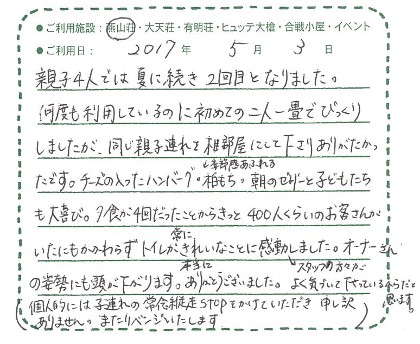 ●ご利用施設：燕山荘・大天荘・有明荘・ヒュッテ大槍・合戦小屋・イベント
●ご利用日： 2017年 5月 3日
親子4人では夏に続き2回目となりました。
何度も利用しているのに初めての二人一畳でびっくり
しましたが、同じ親子連れを相部屋にして下さりありがたかっ
たです。チーズの入ったハンバーグ・柏もち・朝のゼリーと子どもたち
季節感あふれる
も大喜び。夕食が4回だったことからきっと400人くらいのお客さんが
いたにもかかわらずトイレが常にきれいなことに感動しました。オーナーさん
の姿勢にも頭が下がります。本当にありがとうございました。
スタッフの方々がよく気づいて下さっているからだと思います。
(個人的には子連れの常念縦走STOPをかけていただき 申し訳
ありません。またリベンジいたします)